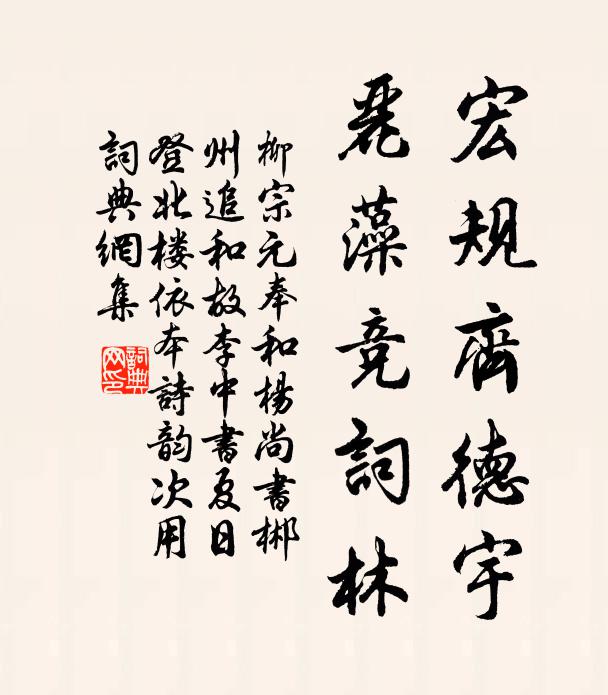 宏规齊德宇
麗藻竞詞林
柳宗元奉和楊尚書郴
州追和故李中書夏日
登北楼依本詩韵次用
詞典網集
詞典网印